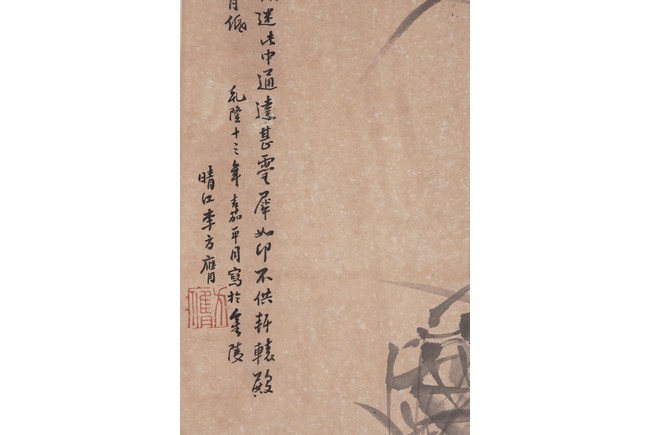 迷此中通達甚靈犀如印不供軒轅殿
月低
乾隆十三年嘉平月寫於金陵
晴江李方膺